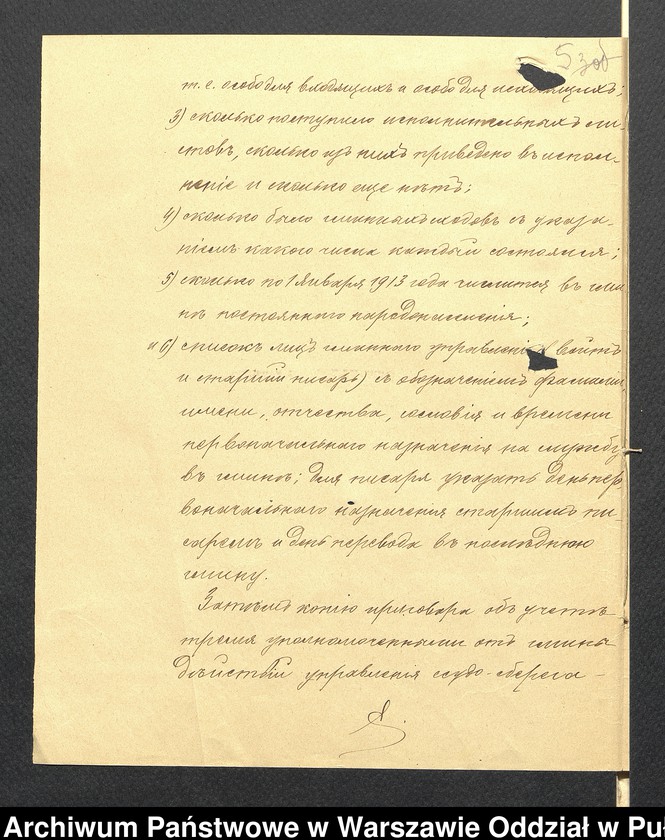 5 зоб
т. е. особо для входящихъ и особо для исходящихъ;
3) сколько поступило исполнительныхъ ли-
стовъ, сколько изъ нихъ приведено въ испол-
неніе и сколько еще нѣтъ;
4) сколько было гминныхъ сходовъ съ указа-
ніемъ какого числа каждый состоялся;
5) сколько по 1 Января 1913 года числится въ гми
нѣ постояннаго народонаселенія;
и 6) списокъ лицъ гминнаго управленія (войтъ
и старшій писарь) съ обозначеніемъ фамиліи,
имени, отчества, сословія и времени
первоначальнаго назначенія на службу
въ гминѣ; для писаря указать день пер
воначальнаго назначенія старшимъ пи-
саремъ и день перевода въ послѣднюю
гмину.
Затѣмъ копію приговора объ учетѣ
тремя уполномоченными отъ гмины
дѣйствій управленія ссудо-сберега-
Archiwum Państwowe w Warszawie Oddział w Pu